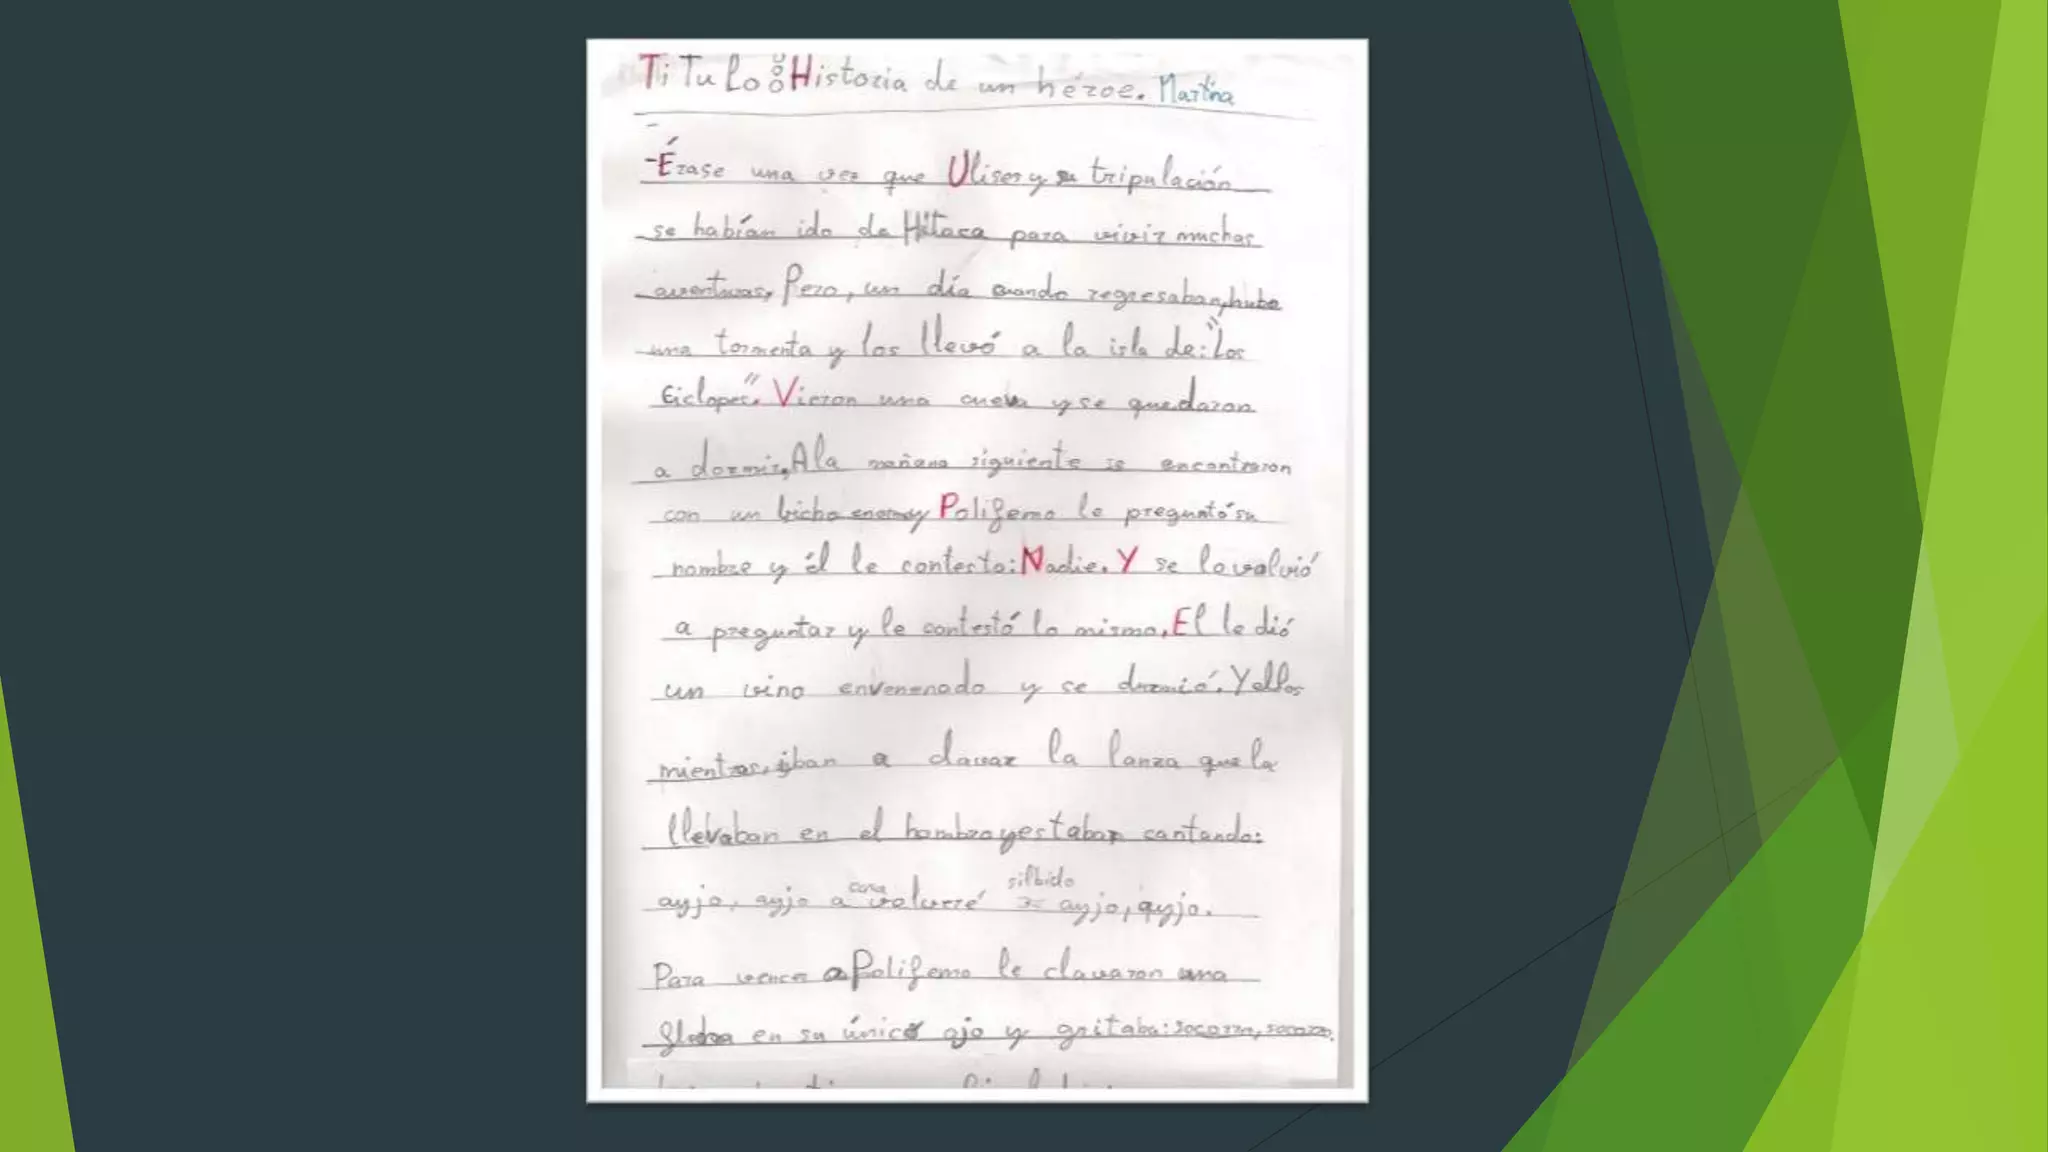 TiTulo: Historia de un héroe. Martina
-Érase una vez que Ulises y su tripulación
se habían ido de Hitaca para vivir muchas
aventuras, Pero, un día cuando regresaban, hubo
una tormenta y los llevó a la isla de: "Los
Ciclopes". Vieron una cueva y se quedaron
a dormir, A la mañana siguiente se encontraron
con un bicho enorme y Polifemo le preguntó su
nombre y él le contesto: Nadie. Y se lo volvió
a preguntar y le contestó lo mismo, El le dió
un vino envenenado y se durmió. Y ellos
mientras, iban a clavar la lanza que la
llevaban en el hombro y estaban cantando:
ayjo, ayjo a casa volveré silbido ayjo, ayjo.
Para vencer a Polifemo le clavaron una
flecha en su único ojo y gritaba: socorro, socorro.